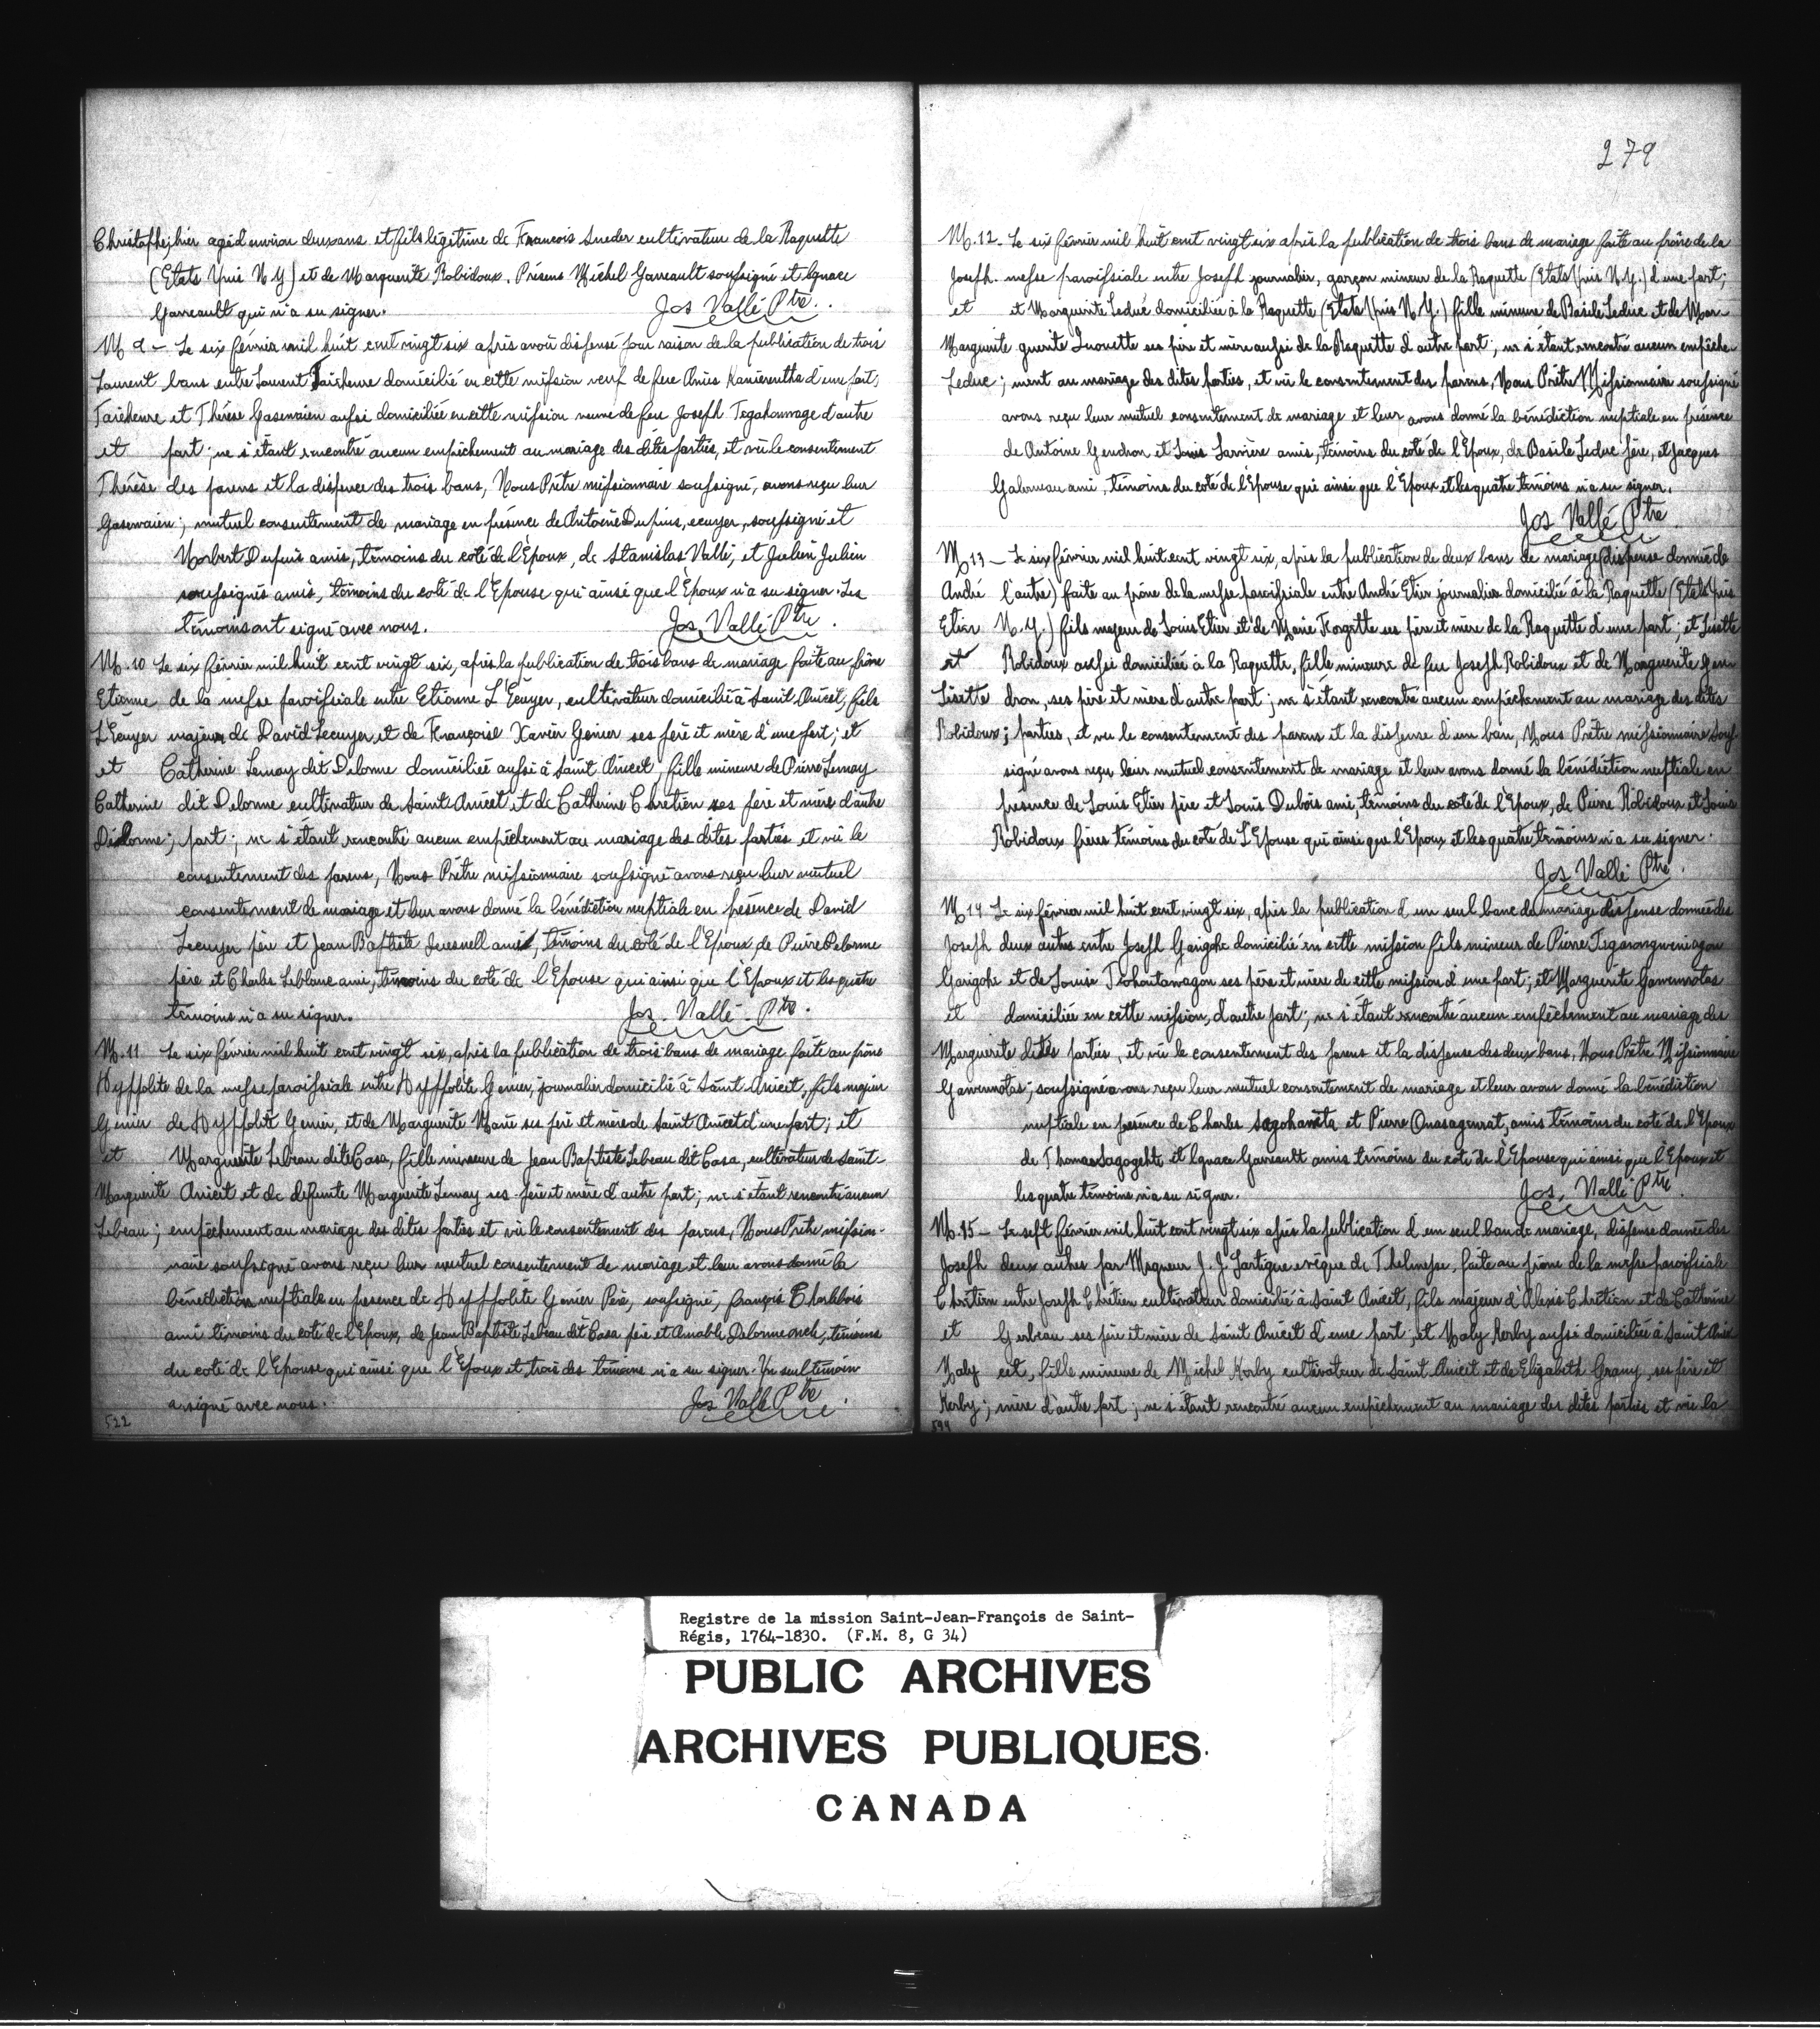 Christophe; hier agé d'environ deux ans et fils légitime de Francois Sneder cultivateur de la Raquette
(Etats Unis N. Y) et de Marguerite Robidoux. Présens Michel Garreault soussigné et Ignace
Garreault qui n'a su signer. Jos Vallé Ptre.
M 9 - Le six février mil huit cent vingt six après avoir dispensé pour raison de la publication de trois
Laurent bans entre Laurent Taiehenre domicilié en cette mission veuf de feue Anies Kanierentha d'une part,
Taiehenre et Thérèse Gasenaien aussi domiciliée en cette mission veuve de feu Joseph Tegahonwage d'autre
et part; ne s'étant rencontré aucun empêchement au mariage des dites parties, et vu le consentement
Thérèse des parens et la dispence des trois bans, Nous Prêtre missionnaire soussigné, avons reçu leur
Gasenaien; mutuel consentement de mariage en présence de Antoine Dupuis, ecuyer, soussigné et
Norbert Dupuis amis, témoins du coté de l'Epoux, de Stanislas Vallé, et Julien Julien
soussignés amis, témoins du coté de l'Epouse qui ainsi que l'Epoux n'a su signer. Les
témoins ont signé avec nous. Jos Vallé Ptre.
M. 10 Le six février mil huit cent vingt six, après la publication de trois bans de mariage faite au prône
Etienne de la messe paroissiale entre Etienne L'Ecuyer, cultivateur domicilié à Saint Anicet, fils
L'Ecuyer majeur de David Lecuyer et de Françoise Xavier Genier ses père et mère d'une part; et
et Catherine Lemay dit Delorme domiciliée aussi à Saint Anicet, fille mineure de Pierre Lemay
Catherine dit Delorme cultivateur de Saint Anicet et de Catherine Chretien ses père et mère d'autre
Delorme; part; ne s'étant rencontré aucun empêchement au mariage des dites parties et vu le
consentement des parens, Nous Prêtre missionnaire soussigné avons reçu leur mutuel
consentement de mariage et leur avons donné la bénédiction nuptiale en présence de David
Lecuyer père et Jean Baptiste Quesnell ami, témoins du côté de l'Epoux, de Pierre Delorme
père et Charles Leblanc ami, témoins du coté de l'Epouse qui ainsi que l'Epoux et les quatre
témoins n'a su signer. Jos. Vallé Ptre.
M. 11 Le six février mil huit cent vingt six, après la publication de trois bans de mariage faite au prône
Hyppolite de la messe paroissiale entre Hyppolite Genier, journalier domicilié à Saint Anicet, fils majeur
Genier de Hyppolite Genier, et de Marguerite Marie ses père et mère de Saint Anicet d'une part; et
et Marguerite Lebeau dite Casa, fille mineure de Jean Baptiste Lebeau dit Casa, cultivateur de Saint
Marguerite Anicet et de défunte Marguerite Lemay ses père et mère d'autre part; ne s'étant rencontré aucun
Lebeau; empêchement au mariage des dites parties et vu le consentement des parens, Nous Prêtre mission-
naire soussigné avons reçu leur mutuel consentement de mariage et leur avons donné la
bénédiction nuptiale en presence de Hyppolite Genier Père, soussigné, françois Charlebois
ami témoins du coté de l'Epoux, de Jean Baptiste Lebeau dit Casa père et Amable Delorme oncle, témoins
du coté de l'Epouse qui ainsi que l'Epoux et trois des témoins n'a su signer. Un seul témoin
a signé avec nous. Jos Vallé Ptre.
522
279
M. 12 - Le six février mil huit cent vingt six après la publication de trois bans de mariage faite au prône de la
Joseph. messe paroissiale entre Joseph journalier, garçon mineur de la Raquette (Etats Unis N. Y.) d'une part;
et et Marguerite Leduc domiciliée à la Raquette (Etats Unis N. Y.) fille mineure de Basile Leduc et de Mar-
Marguerite guerite ses père et mère aussi de la Raquette d'autre part; ne s'étant rencontré aucun empêche-
Leduc; ment au mariage des dites parties, et vu le consentement des parens, Nous Prêtre Missionnaire soussigné
avons reçu leur mutuel consentement de mariage et leur avons donné la bénédiction nuptiale en présence
de Antoine Gendron et Louis Larrière amis, témoins du coté de l'Epoux, de Basile Leduc père, et Jacques
Galarneau ami, témoins du coté de l'Epouse qui ainsi que l'Epoux et les quatre témoins n'a su signer.
Jos Vallé Ptre.
M 13 - Le six février mil huit cent vingt six, après la publication de deux bans de mariage (dispense donnée de
André l'autre) faite au prône de la messe paroissiale entre André Etier journalier domicilié à la Raquette (Etats Unis
Etier N. Y.) fils majeur de Louis Etier et de Marie Forgette ses père et mère de la Raquette d'une part; et Lisette
et Robidoux aussi domiciliée à la Raquette, fille mineure de feu Joseph Robidoux et de Marguerite Gen-
Lisette dron, ses père et mère d'autre part; ne s'étant rencontré aucun empêchement au mariage des dites
Robidoux; parties, et vu le consentement des parens et la dispense d'un ban, Nous Prêtre missionnaire sous-
signé avons reçu leur mutuel consentement de mariage et leur avons donné la bénédiction nuptiale en
presence de Louis Etier père et Louis Dubois ami, témoins du coté de l'Epoux, de Pierre Robidoux et Louis
Robidoux frères témoins du coté de L'Epouse qui ainsi que l'Epoux et les quatre témoins n'a su signer.
Jos Vallé Ptre.
M 14 Le six février mil huit cent vingt six, après la publication d'un seul banc de mariage dispense donnée des
Joseph deux autres entre Joseph Garigohe domicilié en cette mission fils mineur de Pierre
Garigohe et de Louise ses père et mère de cette mission d'une part; et Marguerite Gawennotas
et domiciliée en cette mission, d'autre part; ne s'étant rencontré aucun empêchement au mariage des
Marguerite dites parties, et vu le consentement des parens et la dispense des deux bans, Nous Prêtre Missionnaire
Gawennotas; soussigné avons reçu leur mutuel consentement de mariage et leur avons donné la bénédiction
nuptiale en présence de Charles Sagohaneta et Pierre Onasagenrat, amis témoins du coté de l'Epoux
de Thomas Sagogehte et Ignace Garreault amis témoins du coté de l'Epouse qui ainsi que l'Epoux et
les quatre témoins n'a su signer. Jos. Vallé Ptre.
M. 15 - Le sept février mil huit cent vingt six après la publication d'un seul ban de mariage, dispense donnée des
Joseph deux autres par Mgneur J. J. Lartigue evêque de Thelmesse, faite au prône de la messe paroissiale
Chrétien entre Joseph Chrétien cultivateur domicilié à Saint Anicet, fils majeur d'Alexis Chrétien et de Catherine
et Gerbeau ses père et mère de Saint Anicet d'une part, et Maly Kerby aussi domiciliée à Saint Ani-
Maly cet, fille mineure de Michel Kerby cultivateur de Saint Anicet et de Elizabeth Grany, ses père et
Kerby; mère d'autre part; ne s'étant rencontré aucun empêchement au mariage des dites parties et vu la
Registre de la mission Saint-Jean-François de Saint-
Régis, 1764-1830. (F.M. 8, G 34)
PUBLIC ARCHIVES
ARCHIVES PUBLIQUES
CANADA